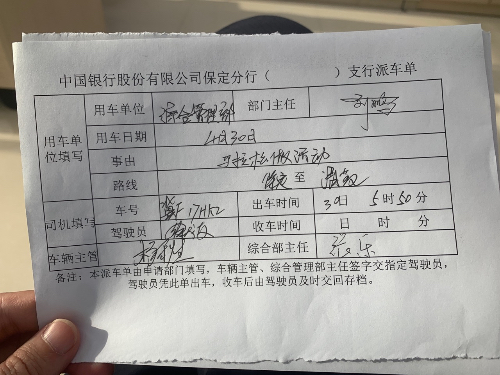 中国银行股份有限公司保定分行（　　　　）支行派车单
用车单位填写 用车单位 综合管理部 部门主任
用车日期 4月30日
事由 马拉松 活动
路线 保定 至
司机填写 车号 出车时间 30日 5时50分
驾驶员 收车时间 日 时 分
车辆主管 综合部主任
备注：本派车单由申请部门填写，车辆主管、综合管理部主任签字交指定驾驶员，
驾驶员凭此单出车，收车后由驾驶员及时交回存档。